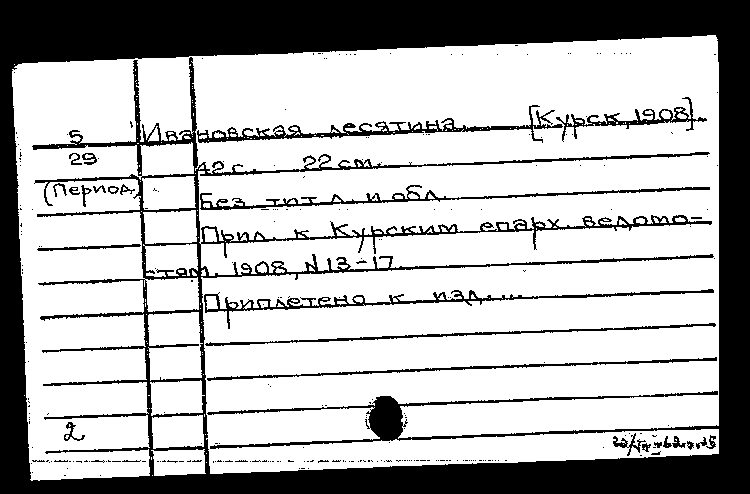 5 Ивановская десятина. [Курск, 1908].
29 42 с. 22 см.
(Период.) Без тит л. и обл.
Прил. к Курским епарх. ведомо-
стям. 1908, N 13-17.
Приплетено к изд....
2